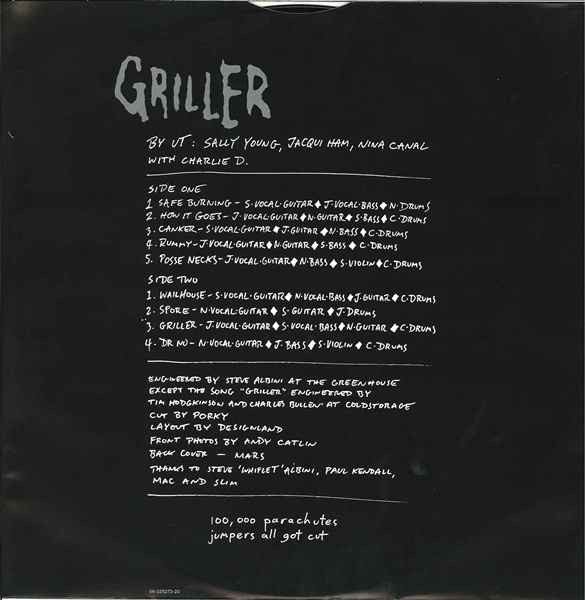 GRILLER
BY UT: SALLY YOUNG, JACQUI HAM, NINA CANAL
WITH CHARLIE D.
SIDE ONE
1 SAFE BURNING - S·VOCAL·GUITAR ♦ J·VOCAL·BASS ♦ N·DRUMS
2. HOW IT GOES - J·VOCAL·GUITAR ♦ N·GUITAR ♦ S·BASS ♦ C·DRUMS
3. CANKER - S·VOCAL·GUITAR ♦ J·GUITAR ♦ N·BASS ♦ C·DRUMS
4. RUMMY - J·VOCAL·GUITAR ♦ N·GUITAR ♦ S·BASS ♦ C·DRUMS
5. POSSE NECKS - J·VOCAL·GUITAR ♦ N·BASS ♦ S·VIOLIN ♦ C·DRUMS
SIDE TWO
1. WAILHOUSE - S·VOCAL·GUITAR ♦ N·VOCAL·BASS ♦ J·GUITAR ♦ C·DRUMS
2. SPORE - N·VOCAL·GUITAR ♦ S·GUITAR ♦ J·DRUMS
3. GRILLER - J·VOCAL·GUITAR ♦ S·VOCAL·BASS ♦ N·GUITAR ♦ C·DRUMS
4. DR NO - N·VOCAL·GUITAR ♦ J·BASS ♦ S·VIOLIN ♦ C·DRUMS
ENGINEERED BY STEVE ALBINI AT THE GREENHOUSE
EXCEPT THE SONG "GRILLER" ENGINEERED BY
TIM HODGKINSON AND CHARLES BULLEN AT COLDSTORAGE
CUT BY PORKY
LAYOUT BY DESIGNLAND
FRONT PHOTOS BY ANDY CATLIN
BACK COVER - MARS
THANKS TO STEVE 'WHIPLET' ALBINI, PAUL KENDALL,
MAC AND SLIM
100,000 parachutes
jumpers all got cut